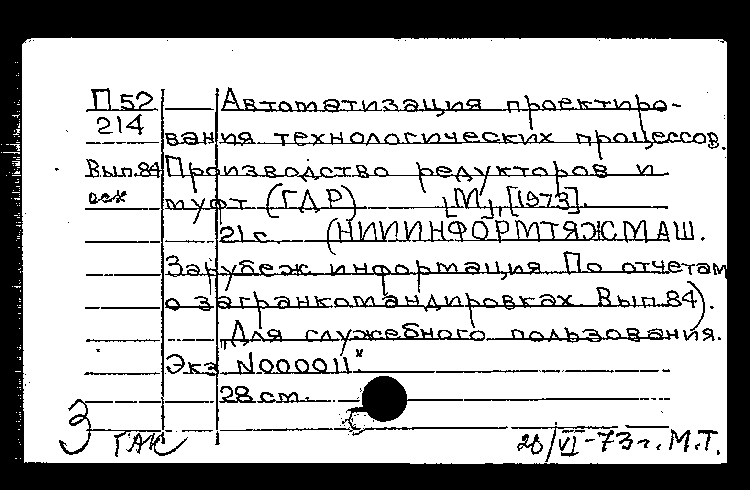 П52 Автоматизация проектиро-
214 вания технологических процессов.
Вып.84 Производство редукторов и
муфт (ГДР) [М], [1973].
21 с. (НИИИНФОРМТЯЖМАШ.
Зарубеж. информация. По отчетам
о загранкомандировках. Вып.84).
"Для служебного пользования.
Экз N000011".
28 см.
3 ГАК 28/VI-73г. М.Т.